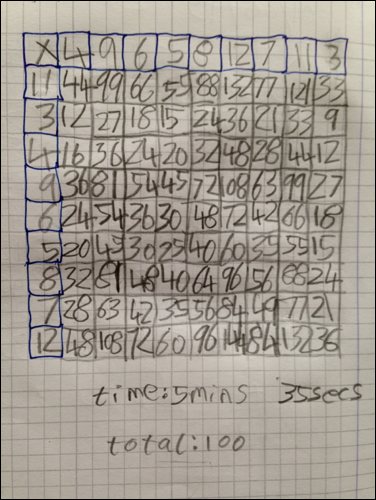 X 4 9 6 5 8 12 7 11 3
11 44 99 66 55 88 132 77 121 33
3 12 27 18 15 24 36 21 33 9
4 16 36 24 20 32 48 28 44 12
9 36 81 54 45 72 108 63 99 27
6 24 54 36 30 48 72 42 66 18
5 20 45 30 25 40 60 35 55 15
8 32 81 48 40 64 96 56 88 24
7 28 63 42 35 56 84 49 77 21
12 48 108 72 60 96 144 84 132 36
time:5mins 35secs
total:100